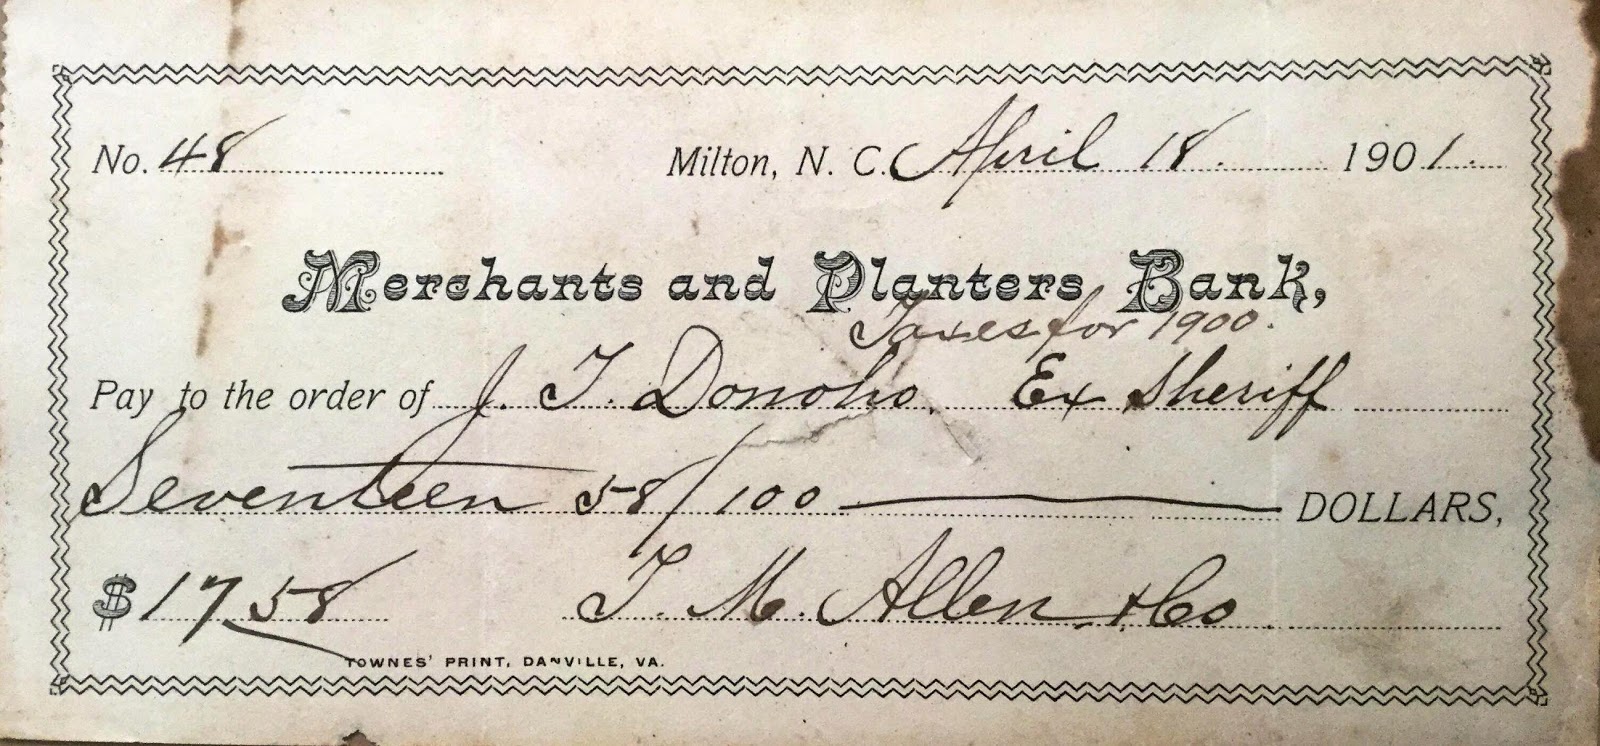 No. 48 Milton, N. C. April 18. 1901.
Merchants and Planters Bank,
Taxes for 1900.
Pay to the order of J. T. Donoho. Ex Sheriff
Seventeen 58/100 DOLLARS,
$ 17 58 T. M. Allen & Co
TOWNES' PRINT, DANVILLE, VA.